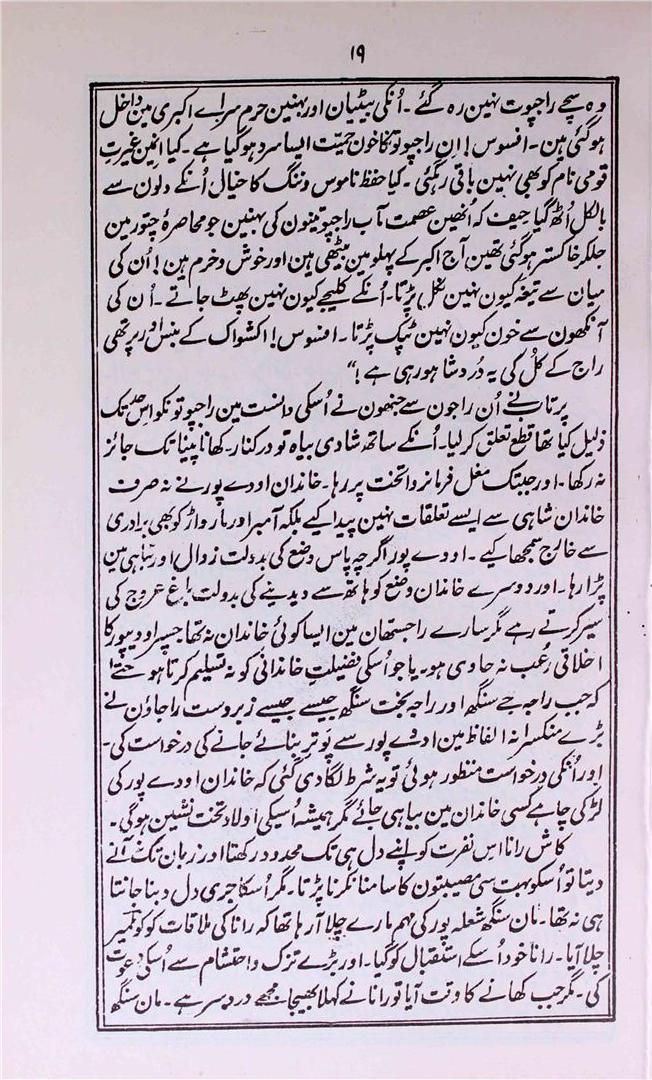 ۱۹
وہ سچے راجپوت نہین رہ گئے ۔ اُنکی بیٹیان اور بہنین حرم سراے اکبری مین داخل
ہوگئی ہین ۔ افسوس! اِن راجپوتونکا خون حمیّت ایسا سرد ہوگیا ہے ۔ کیا انمین غیرتِ
قومی نام کو بھی نہین باقی رہگئی ۔ کیا حفظ ناموس و ننگ کا خیال اُنکے دلون سے
بالکل اُٹھ گیا حیف کہ اُنھین عصمت آب راجپوتینون کی بہنین جو محاصرۂ چتور مین
جلکر خاکستر ہوگئی تھین آج اکبر کے پہلو مین بیٹھی ہین اور خوش و خرم ہین! اُن کی
میان سے تیغہ کیون نہین نکل پڑتا ۔ اُنکے کلیجے کیون نہین پھٹ جاتے ۔ اُن کی
آنکھون سے خون کیون نہین ٹپک پڑتا ۔ افسوس! اکشواک کے بنس اور پرتھی
راج کے کُل کی یہ دُردشا ہو رہی ہے!"
پرتاپ نے اُن راجون سے جنھون نے اُسکی دانست مین راجپوتونکو اس حد تک
ذلیل کیا تھا قطع تعلق کر لیا ۔ اُنکے ساتھ شادی بیاہ تو درکنار ۔ کھانا پینا تک جائز
نہ رکھا ۔ اور جبتک مغل فرمانروا تخت پر رہا ۔ خاندان اودے پور نے نہ صرف
خاندان شاہی سے ایسے تعلقات نہین پیدا کیے بلکہ آمبر اور مارواڑ کو بھی برادری
سے خارج سمجھا کیے ۔ اودے پور اگرچہ پاس وضع کی بدولت زوال اور تباہی مین
پڑا رہا ۔ اور دوسرے خاندان وضع کو ہاتھ سے دیدینے کی بدولت باغ عروج کی
سیر کرتے رہے مگر سارے راجستھان مین ایسا کوئی خاندان نہ تھا جسپر اودیپور کا
اخلاقی رُعب نہ حاوی ہو ۔ یا جو اُسکی فضیلتِ خاندانی کو نہ تسلیم کرتا ہو حتےٰ
کہ جب راجہ جے سنگھ اور راجہ بخت سنگھ جیسے جیسے زبردست راجاؤن نے
بڑے منکسرانہ الفاظ مین اودے پور سے پوتر بنائے جانے کی درخواست کی ۔
اور اُنکی درخواست منظور ہوئی تو یہ شرط لگا دی گئی کہ خاندان اودے پور کی
لڑکی چاہے کسی خاندان مین بیاہی جائے مگر ہمیشہ اُسیکی اولاد تخت نشین ہوگی ۔
کاش رانا اس نفرت کو اپنے دل ہی تک محدود رکھتا اور زبان تک نہ آنے
دیتا تو اُسکو بہت سی مصیبتون کا سامنا نکرنا پڑتا ۔ مگر اُسکا جری دل دبنا جانتا
ہی نہ تھا ۔ مان سنگھ شعلہ پور کی مہم مارے چلا آرہا تھا کہ رانا کی ملاقات کو کونملمیر
چلا آیا ۔ رانا خود اُسکے استقبال کو گیا ۔ اور بڑے تزک و احتشام سے اُسکی دعوت
کی ۔ مگر جب کھانے کا وقت آیا تو رانا نے کہلا بھیجا مجھے دردسر ہے ۔ مان سنگھ